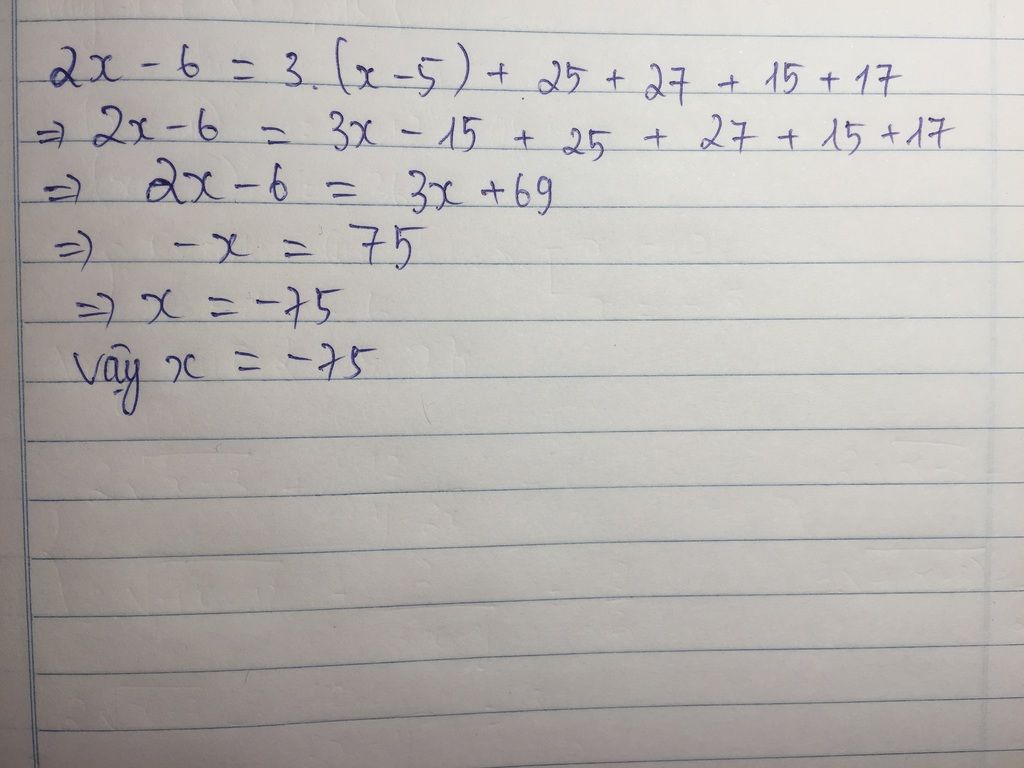 2x - 6 = 3. (x - 5) + 25 + 27 + 15 + 17
=> 2x - 6 = 3x - 15 + 25 + 27 + 15 + 17
=> 2x - 6 = 3x + 69
=> -x = 75
=> x = -75
Vậy x = -75